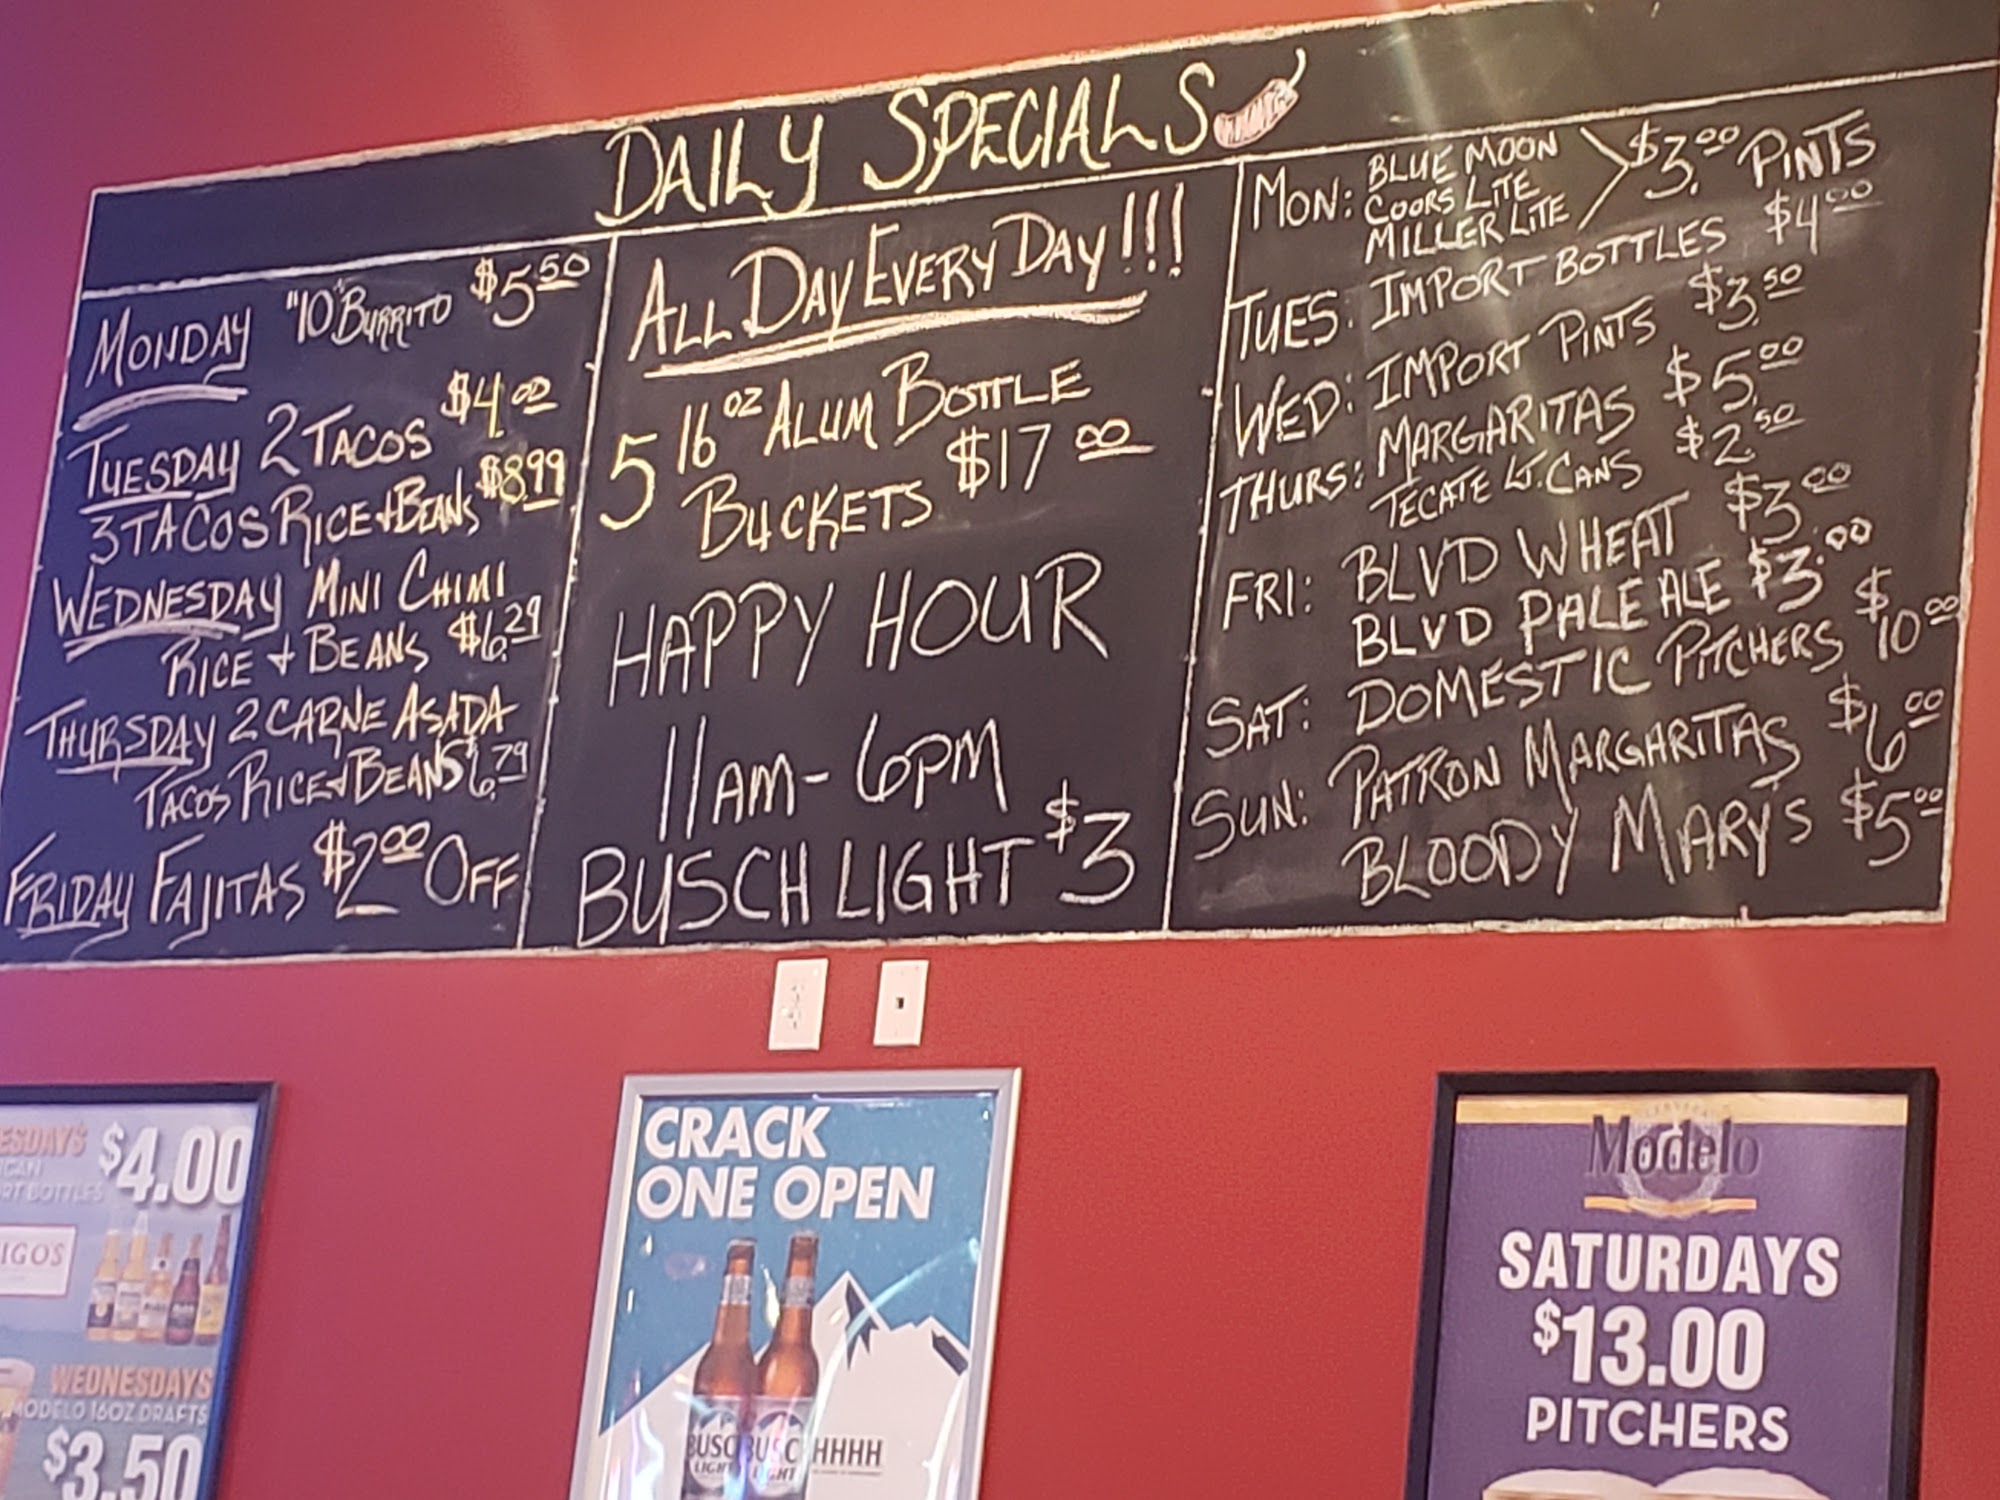 DAILY SPECIALS
MONDAY "10" BURRITO $5.50
TUESDAY 2 TACOS $4.00
3 TACOS RICE + BEANS $8.99
WEDNESDAY MINI CHIMI
RICE + BEANS $6.29
THURSDAY 2 CARNE ASADA
TACOS RICE + BEANS $6.79
FRIDAY FAJITAS $2.00 OFF
ALL DAY EVERY DAY!!!
5 16 OZ ALUM BOTTLE
BUCKETS $17.00
HAPPY HOUR
11AM - 6PM
BUSCH LIGHT $3
MON: BLUE MOON
COORS LITE
MILLER LITE
$3.00 PINTS
TUES: IMPORT BOTTLES $4.00
WED: IMPORT PINTS $3.50
THURS: MARGARITAS $5.00
TECATE LT. CANS $2.50
FRI: BLVD WHEAT $3.00
BLVD PALE ALE $3.00
SAT: DOMESTIC PITCHERS $10.00
SUN: PATRON MARGARITAS $6.00
BLOODY MARY'S $5.00
ESDAYS $4.00
ICAN
RT BOTTLES
IGOS
WEDNESDAYS
MODELO 16OZ DRAFTS
$3.50
CRACK
ONE OPEN
BUSC BUSC HHHH
LIGHT LIGHT
Modelo
SATURDAYS
$13.00
PITCHERS